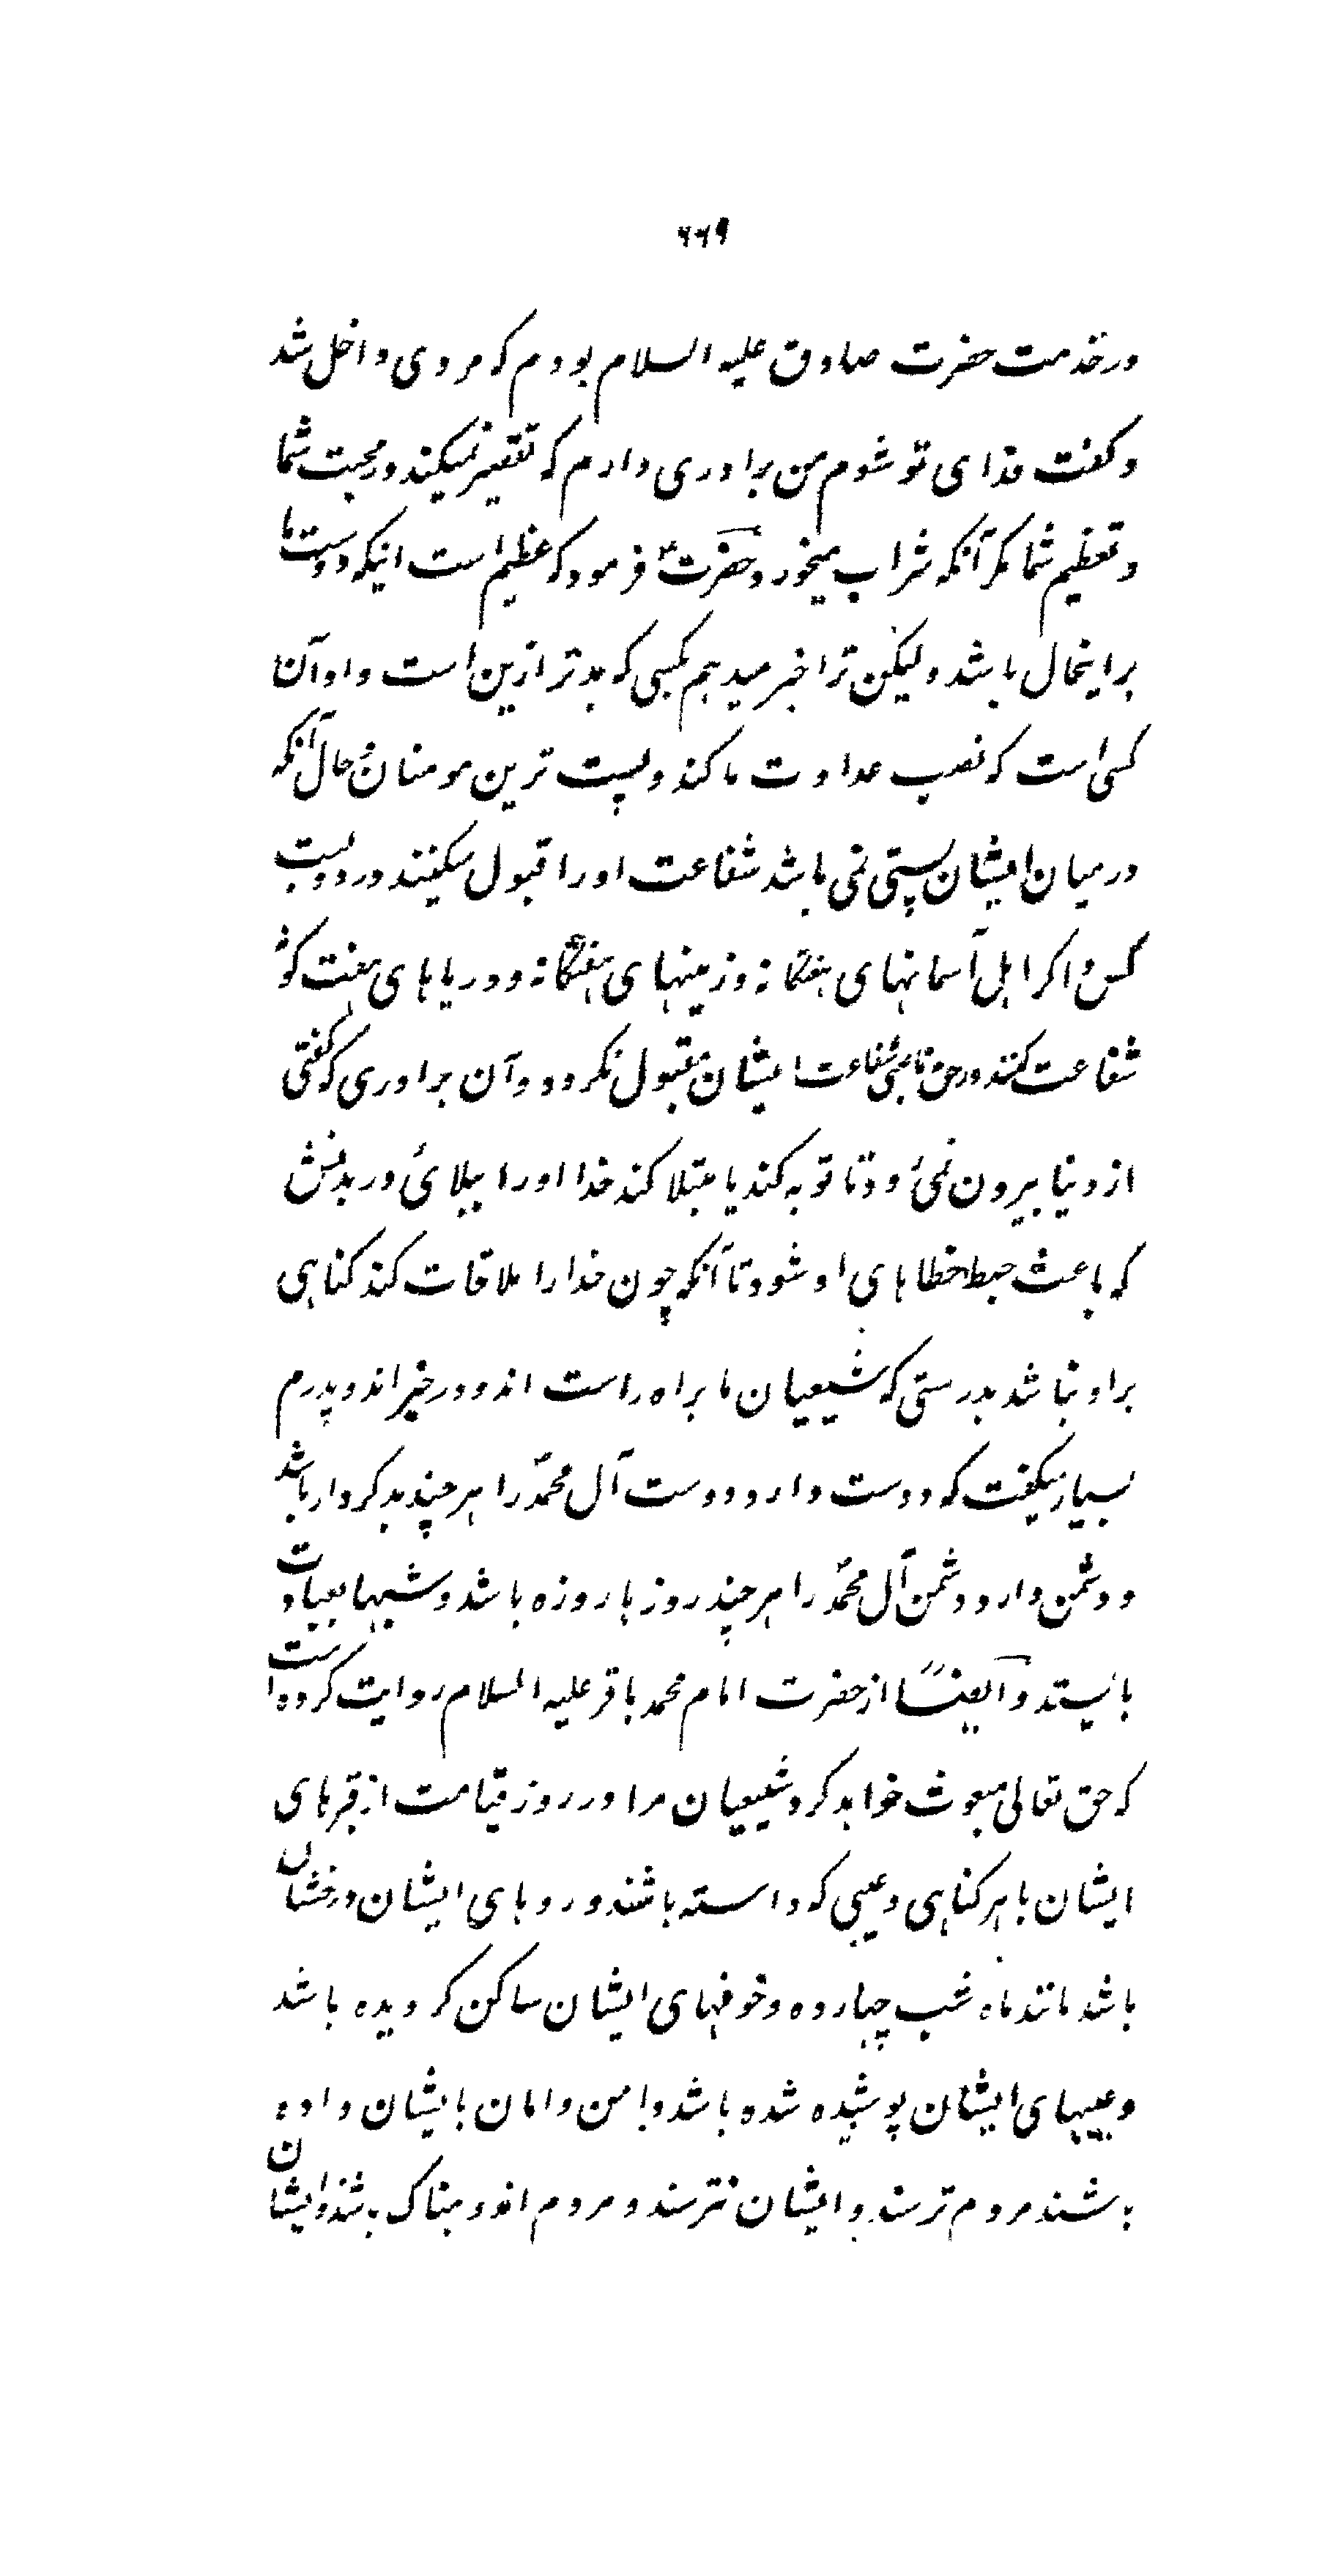 ۶۶۹
در خدمت حضرت صادق علیه السلام بودم که مردی داخل شد
و گفت فدای تو شوم من برادری دارم که تقصیر نمیکند در محبت شما
و تعظیم شما مگر آنکه شراب میخورد حضرتؑ فرمود که عظیم است اینکه دوست ما
بر اینحال باشد ولیکن ترا خبر میدهم بکسی که بدتر ازین است و او آن
کسی است که نصب عداوت ما کند و پست ترین مومنان و حال آنکه
در میان ایشان پستی نمی باشد شفاعت او را قبول میکنند در دویست
کس و اگر اهل آسمانهای هفتگانه و زمینهای هفتگانه و دریاهای هفت گو
شفاعت کنند در حق ناصبی شفاعت ایشان مقبول نگردد و آن برادری که گفتی
از دنیا بیرون نمیٔ رود تا توبه کند یا مبتلا کند خدا او را ببلائی در بدنش
که باعث حبط خطاهای او شود تا آنکه چون خدا را ملاقات کند گناهی
بر او نباشد بدرستی که شیعیان ما بر راه راست اند و در خیر اند و پدرم
بسیار میگفت که دوست دار دوست آل محمدؐ را هر چند بدکردار باشد
و دشمن دار دشمن آل محمدؐ را هر چند روزها روزه باشد و شبها بعبادت
بایستد و ایضًا از حضرت امام محمد باقر علیه السلام روایت کرده است
که حق تعالی مبعوث خواهد کرد شیعیان ما را در روز قیامت از قبرهای
ایشان با هر گناهی و عیبی که داسته باشند و روهای ایشان درخشان
باشد مانند ماه شب چهارده و خوفهای ایشان ساکن گردیده باشد
و عیبهای ایشان پوشیده شده باشد و امن و امان بایشان داده
باشند مردم ترسند و ایشان نترسند و مردم اندوهناک باشند و ایشان